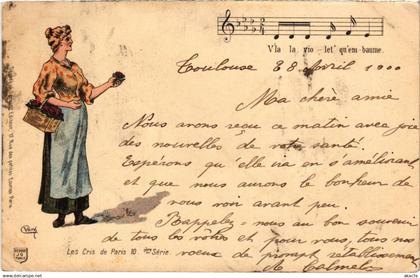 V'la la vio - let' qu'em - baume.
Toulouse 28 Avril 1900
Ma chère amie
Nous avons reçu ce matin avec joie
des nouvelles de votre santé.
Espérons qu'elle ira en s'améliorant
et que nous aurons le bonheur de
vous voir avant peu.
Rappelez-nous au bon souvenir
de tous les vôtres et pour vous, tous nos
voeux de prompt rétablissement
Les Cris de Paris 10. Série.